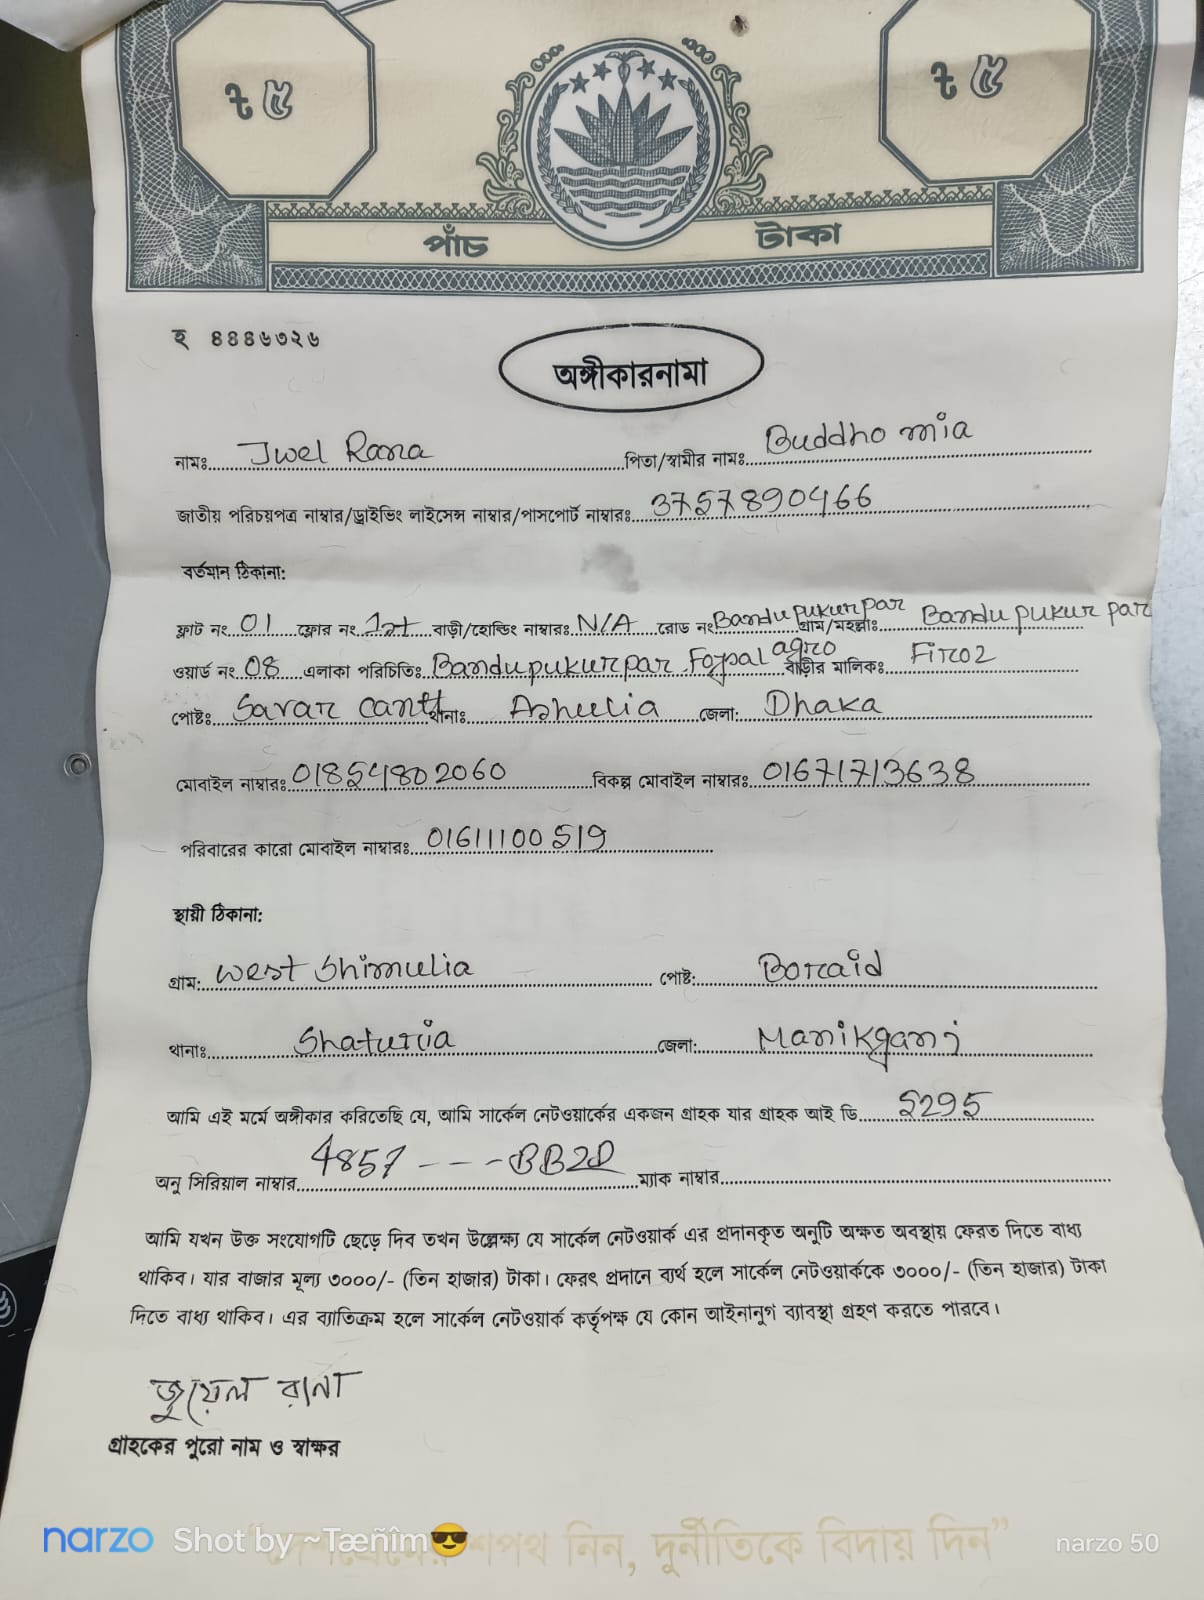 ৳ ৫ ৳ ৫
পাঁচ টাকা
হ ৪৪৪৬৩২৬
অঙ্গীকারনামা
নামঃ Jwel Rana পিতা/স্বামীর নামঃ Buddho mia
জাতীয় পরিচয়পত্র নাম্বার/ড্রাইভিং লাইসেন্স নাম্বার/পাসপোর্ট নাম্বারঃ 3757890466
বর্তমান ঠিকানা:
ফ্লাট নং 01 ফ্লোর নং 1st বাড়ী/হোল্ডিং নাম্বারঃ N/A রোড নং Bandu pukur par গ্রাম/মহল্লাঃ Bandu pukur par
ওয়ার্ড নং 08 এলাকা পরিচিতিঃ Bandu pukur par agro বাড়ীর মালিকঃ
পোষ্টঃ Savar cantt থানাঃ Ashulia জেলা: Dhaka
মোবাইল নাম্বারঃ 01854802060 বিকল্প মোবাইল নাম্বারঃ 01671713638
পরিবারের কারো মোবাইল নাম্বারঃ 01611100519
স্থায়ী ঠিকানা:
গ্রাম: West Shimulia পোষ্ট: Boraid
থানাঃ Shaturia জেলা: Manikganj
আমি এই মর্মে অঙ্গীকার করিতেছি যে, আমি সার্কেল নেটওয়ার্কের একজন গ্রাহক যার গ্রাহক আই ডি 5295
অনু সিরিয়াল নাম্বার 4857 - - - BB2D ম্যাক নাম্বার
আমি যখন উক্ত সংযোগটি ছেড়ে দিব তখন উল্লেক্ষ্য যে সার্কেল নেটওয়ার্ক এর প্রদানকৃত অনুটি অক্ষত অবস্থায় ফেরত দিতে বাধ্য
থাকিব। যার বাজার মূল্য ৩০০০/- (তিন হাজার) টাকা। ফেরৎ প্রদানে ব্যর্থ হলে সার্কেল নেটওয়ার্ককে ৩০০০/- (তিন হাজার) টাকা
দিতে বাধ্য থাকিব। এর ব্যাতিক্রম হলে সার্কেল নেটওয়ার্ক কর্তৃপক্ষ যে কোন আইনানুগ ব্যাবস্থা গ্রহণ করতে পারবে।
জুয়েল রানা
গ্রাহকের পুরো নাম ও স্বাক্ষর
narzo Shot by ~Tæñîm😎 narzo 50
শপথ নিন, দুর্নীতিকে বিদায় দিন”